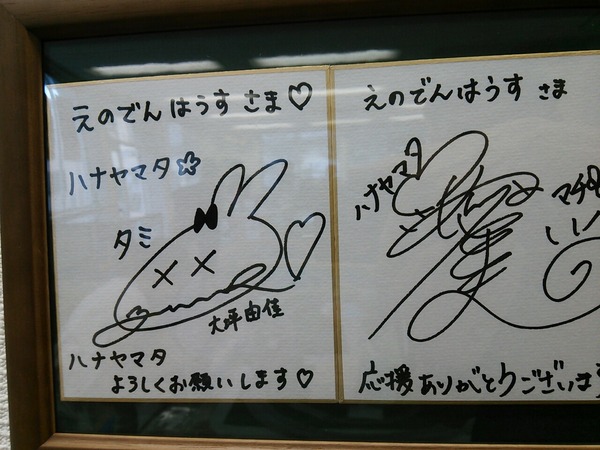 えのでんはうすさま♡
ハナヤマタ
タミ
大坪由佳
ハナヤマタ
よろしくお願いします♡
えのでんはうすさま
ハナヤマタ
マチ
応援ありがとうございます